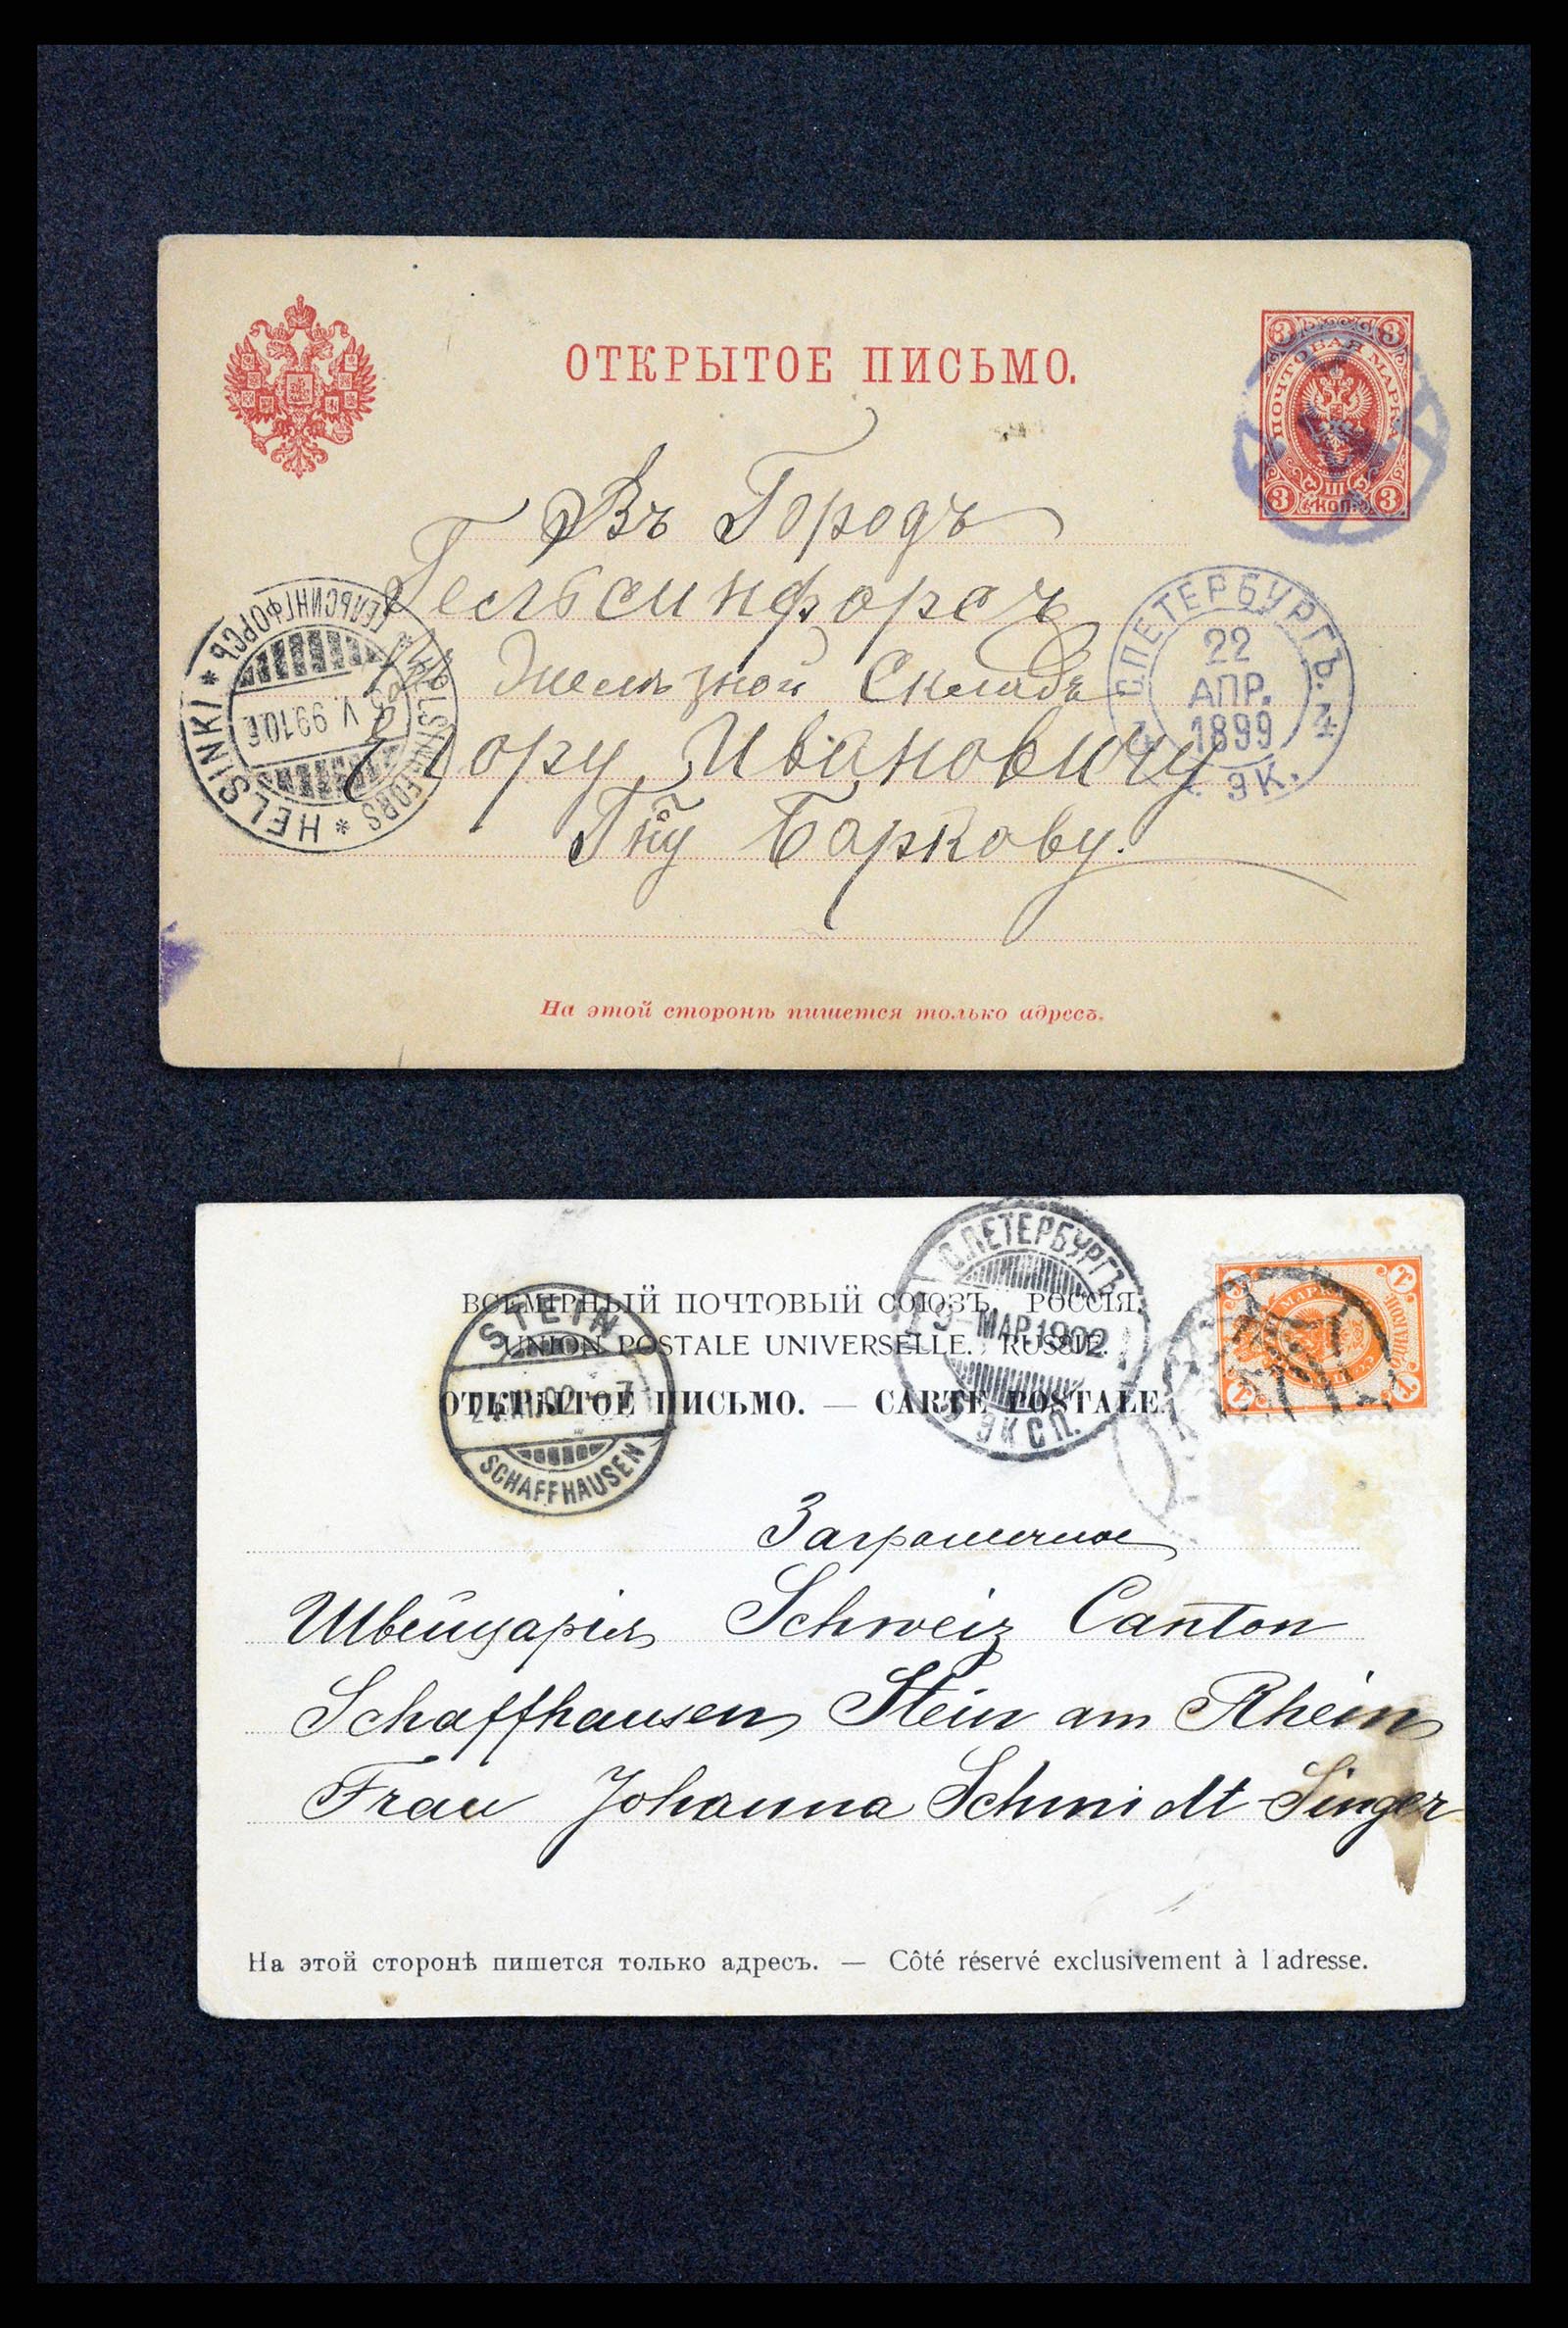 ОТКРЫТОЕ ПИСЬМО.
3 3
ПОЧТОВАЯ МАРКА
III
КОП.
3 3
Въ Городъ
Гельсингфорсъ
Въ Желѣзной Складъ
Егору Ивановичу
Гну Баркову.
С.ПЕТЕРБУРГЪ.
22
АПР.
1899
4 ЭК. 4
ГЕЛЬСИНГФОРСЪ * HELSINGFORS * HELSINKI *
V. 99.10
На этой сторонѣ пишется только адресъ.
ВСЕМІРНЫЙ ПОЧТОВЫЙ СОЮЗЪ. РОССІЯ.
UNION POSTALE UNIVERSELLE. RUSSIE.
ОТКРЫТОЕ ПИСЬМО. — CARTE POSTALE.
STEIN
02
SCHAFFHAUSEN
С.ПЕТЕРБУРГЪ
9-МАР.1902
ЭКСП.
1 1
МАРКА
1 1
Заграничное
Швейцарія Schweiz Canton
Schaffhausen Stein am Rhein
Frau Johanna Schmidt-Singer
На этой сторонѣ пишется только адресъ. — Côté réservé exclusivement à l'adresse.